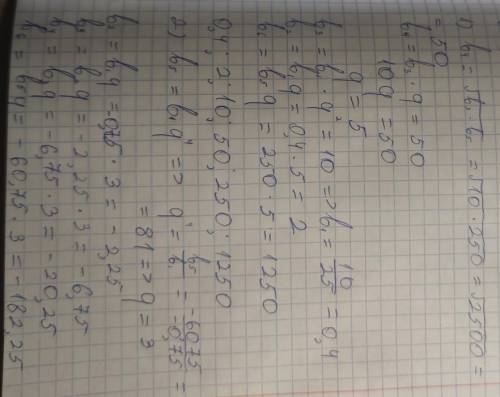 1) b₄ = √b₃ · b₅ = √10 · 250 = √2500 =
= 50
b₄ = b₃ · q = 50
10q = 50
q = 5
b₃ = b₁ · q² = 10 => b₁ = 10/25 = 0,4
b₂ = b₁q = 0,4 · 5 = 2
b₆ = b₅q = 250 · 5 = 1250
0,4; 2; 10; 50; 250; 1250
2) b₅ = b₁q⁴ => q⁴ = b₅/b₁ = -60,75/-0,75 =
= 81 => q = 3
b₂ = b₁q = -0,75 · 3 = -2,25
b₃ = b₂q = -2,25 · 3 = -6,75
b₄ = b₃q = -6,75 · 3 = -20,25
b₆ = b₅q = -60,75 · 3 = -182,25